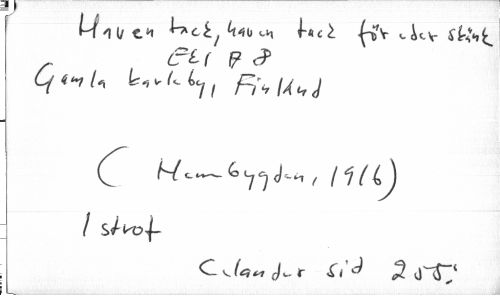 Haven tack, haven tack för eder skänk
EE1 A 8
Gamla Karleby, Finland
(Hembygden, 1916)
1 strof
Celander sid 255.